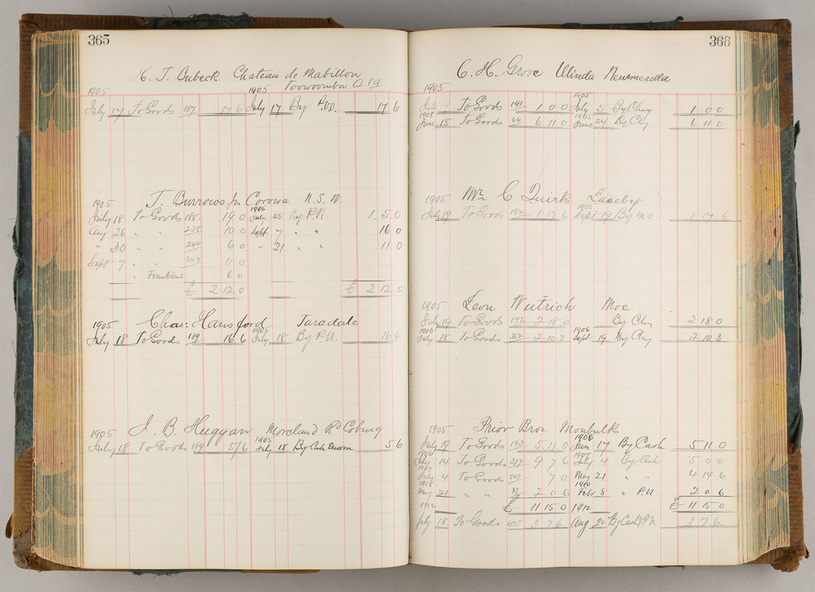 365
N. J. Bubeck Chateau de Mabillon
Toowoomba Qld
1905 1905
July 17 To Goods 187 17 6 July 17 By P.O. 17 6
J. Burrows Corowa N.S.W
1905 1905
July 18 To Goods 188 19 0 July 25 By P.N. 1 5 0
Aug 26 " " 235 10 0 Sept 7 " " 16 0
" 30 " " 240 6 0 " 21 " " 11 0
Sept 7 " " 247 11 0
" Frankland 6 0
£ 2 12 0 £ 2 12 0
Chas. Hansford Taradale
1905 1905
July 18 To Goods 189 16 6 July 18 By P.N. 16 6
J. B. Huggan Moreland Rd Coburg
1905 1905
July 18 To Goods 189 5/6 July 18 By Cash 5 6
366
C. H. Grove Ulinda Newmerella
1905
July To Goods 191 1 0 0 July 5 By Chq 1 0 0
1908 1908
June 18 To Goods 66 6 11 0 June 24 By Chq. 6 11 0
1905 Mr C Quirk Laceby 1905
July 19 To Goods 192 1 17 6 Sept 19 By M.O. 1 17 6
1905 Leon Wutrich Moe
July 19 To Goods 192 2 18 0 By Chq 2 18 0
1906 1906
July 18 To Goods 2 10 3 Sept 19 By Chq 2 10 3
1905 Prior Bros. Monbulk
1906
July 19 To Goods 193 5 11 0 Jan 17 By Cash 5 11 0
1906 1907
July 14 To Goods 9 7 6 July 4 By Cash 5 0 0
1907
July 4 To Goods 7 0 May 21 " " 4 14 6
1908 1910
May 21 " " 2 0 6 Feb 8 " P.N. 2 0 6
1912 £ 11 15 0 1912 £ 11 15 0
July 18 To Goods 3 7 6 Aug By Cash P.N. 3 7 6